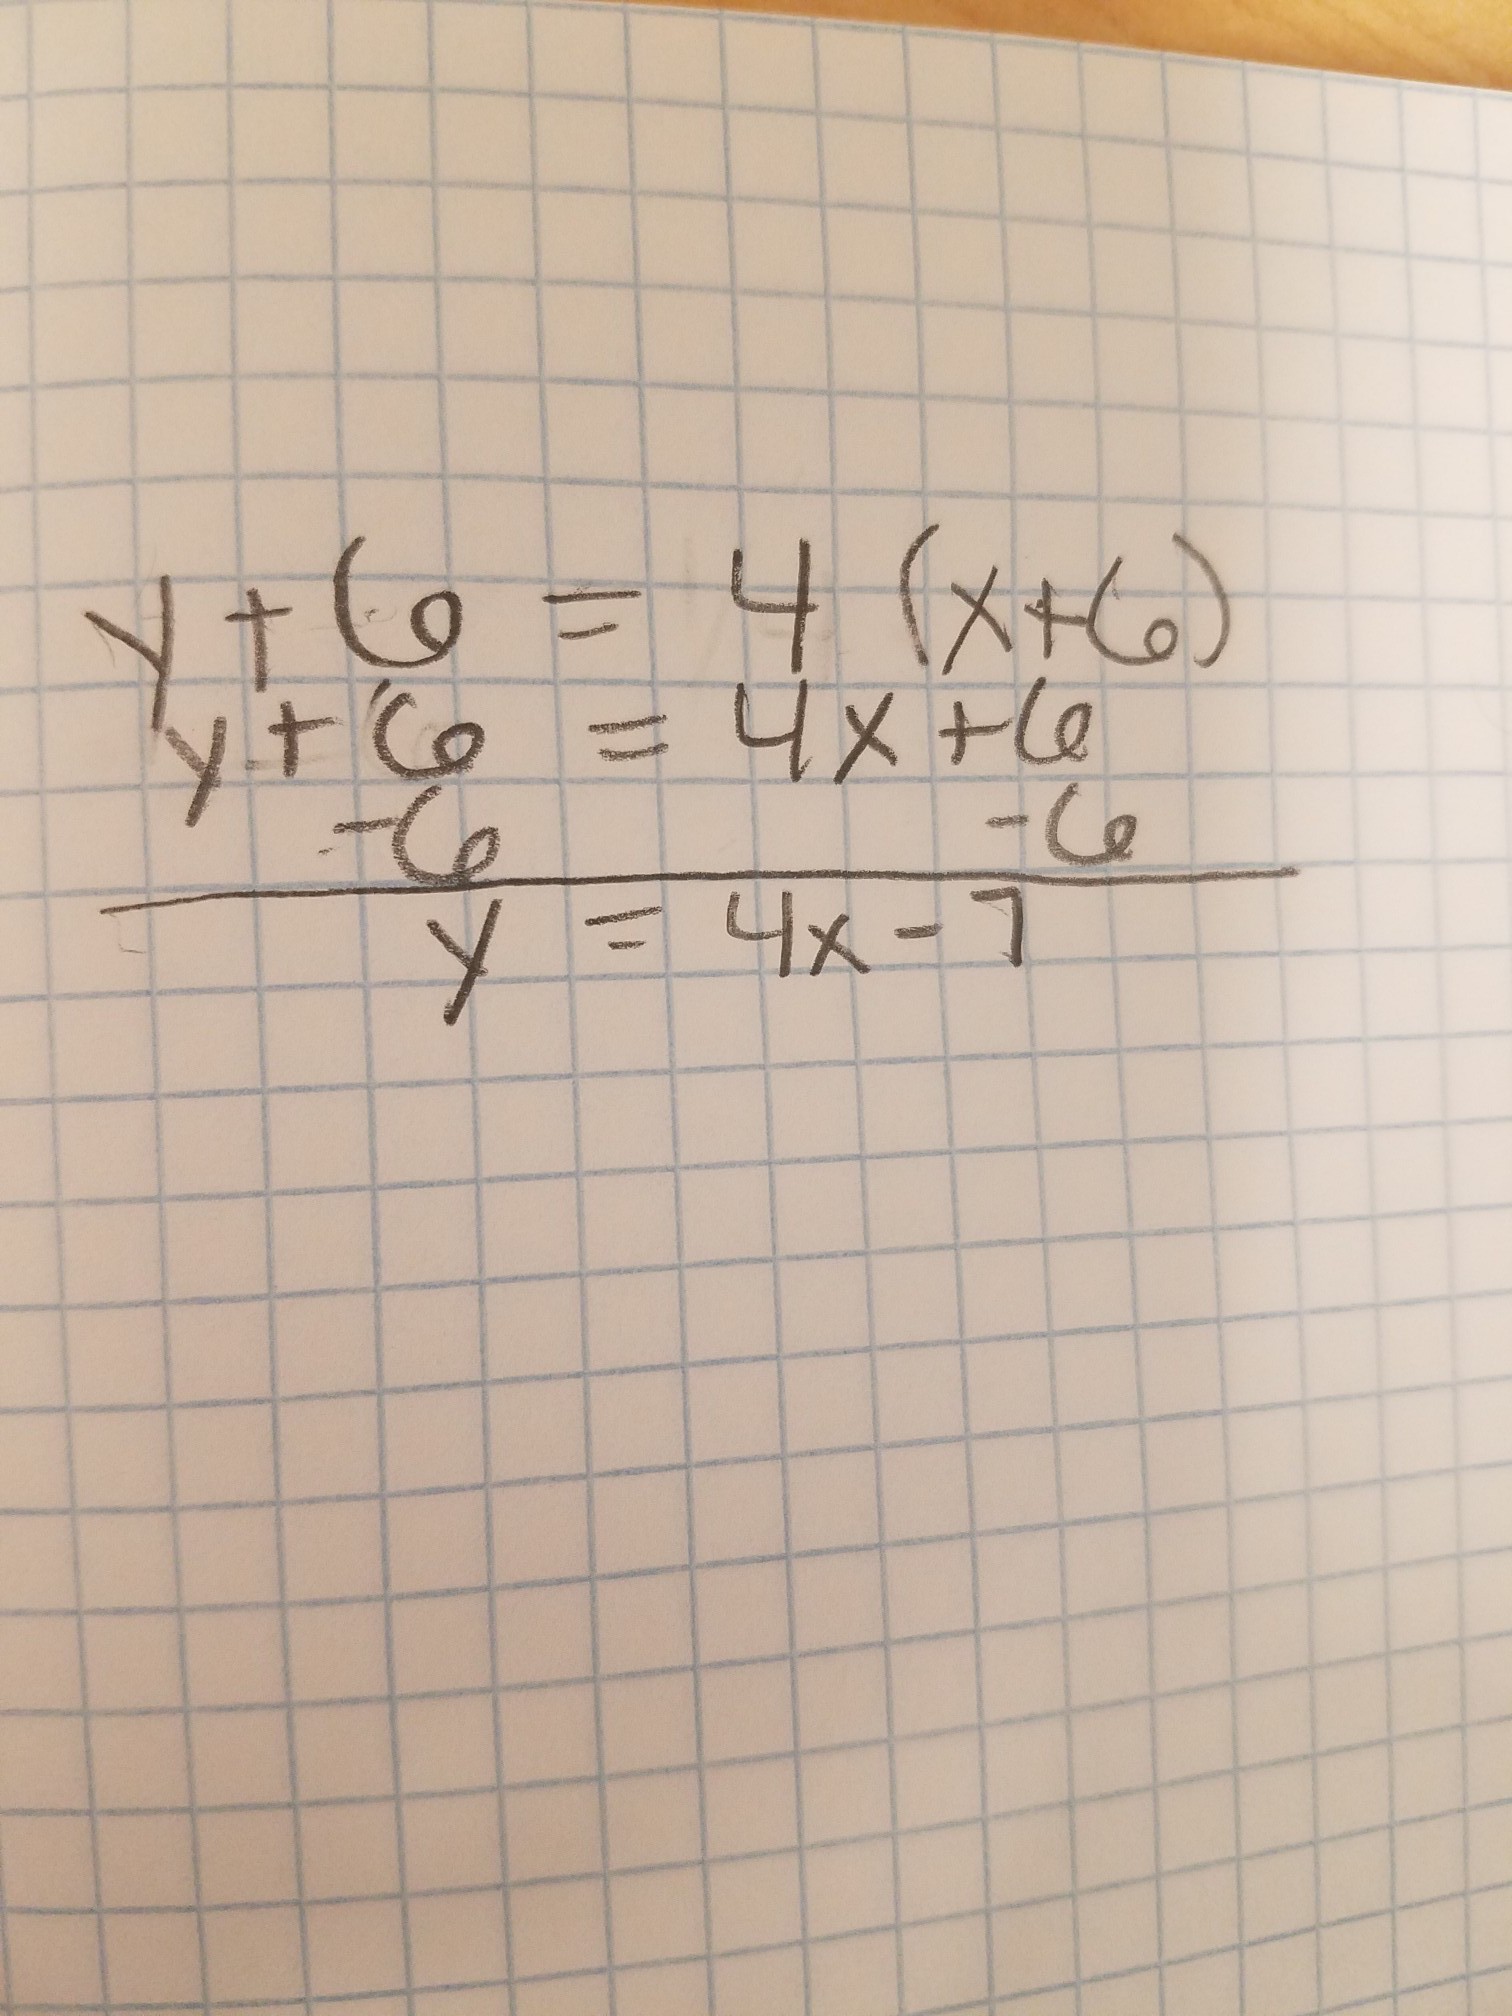 y + 6 = 4 (x+6)
y + 6 = 4x +6
-6 -6
y = 4x - 7